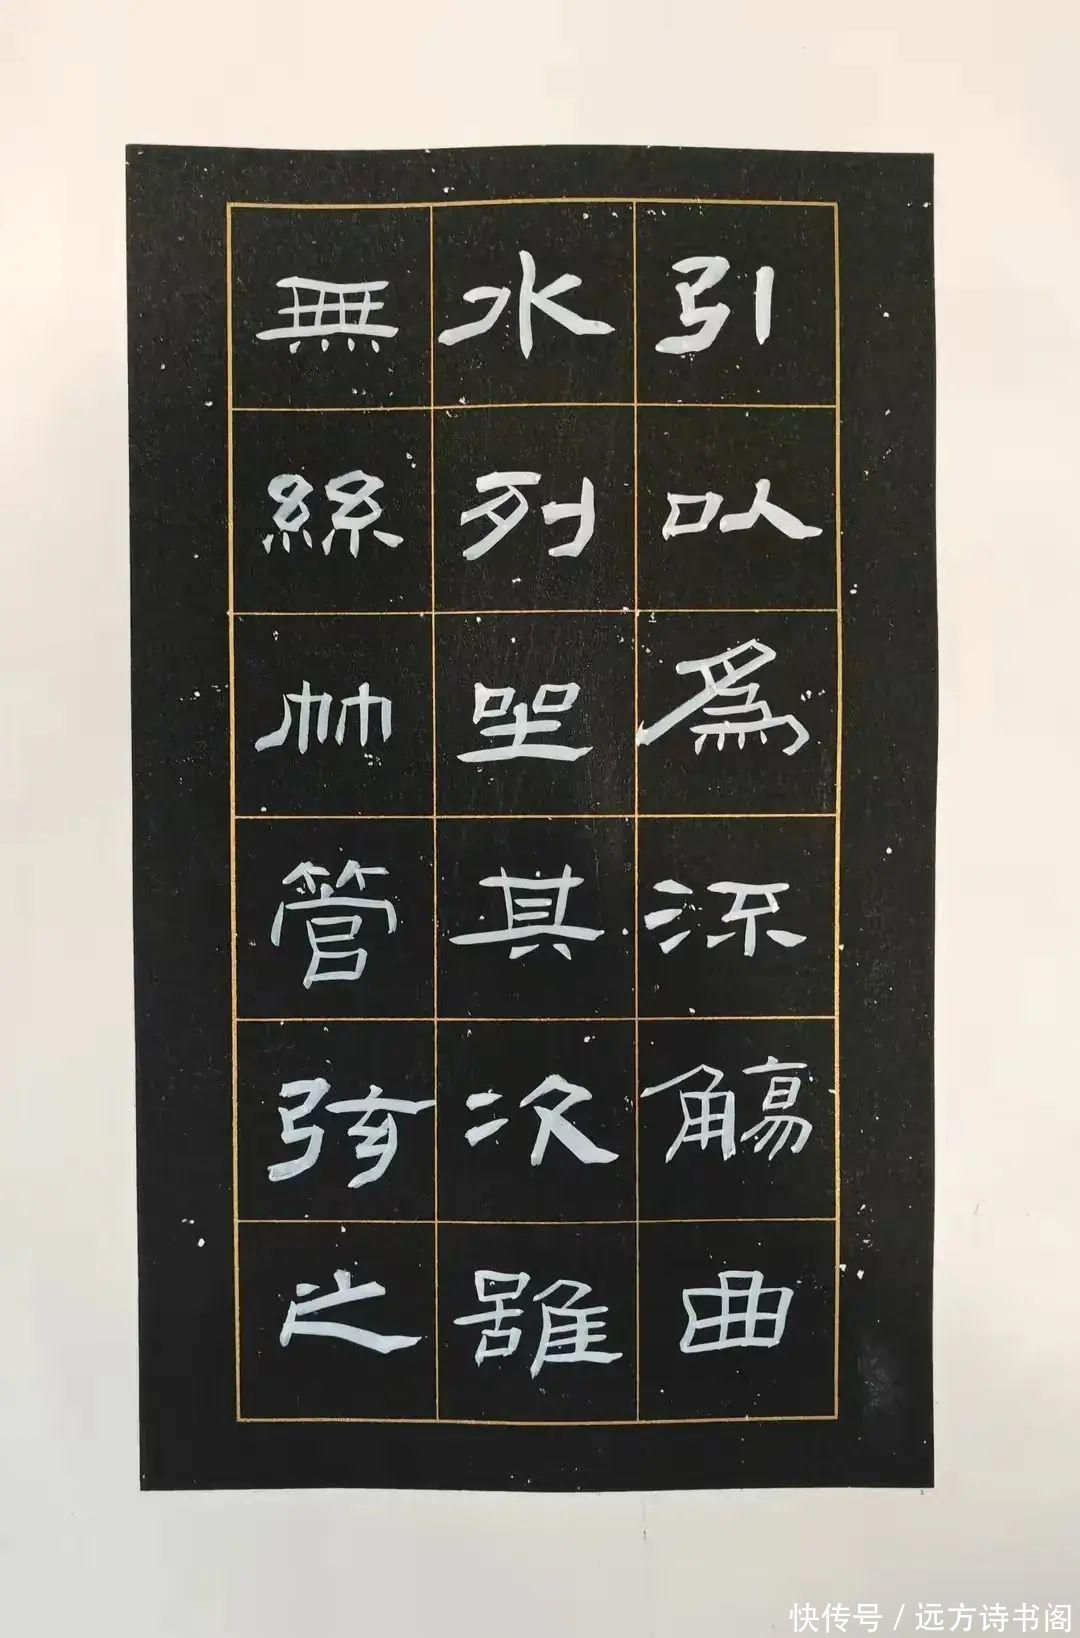 引以爲流觴曲
水列坐其次雖
無絲竹管弦之
快传号 / 远方诗书阁